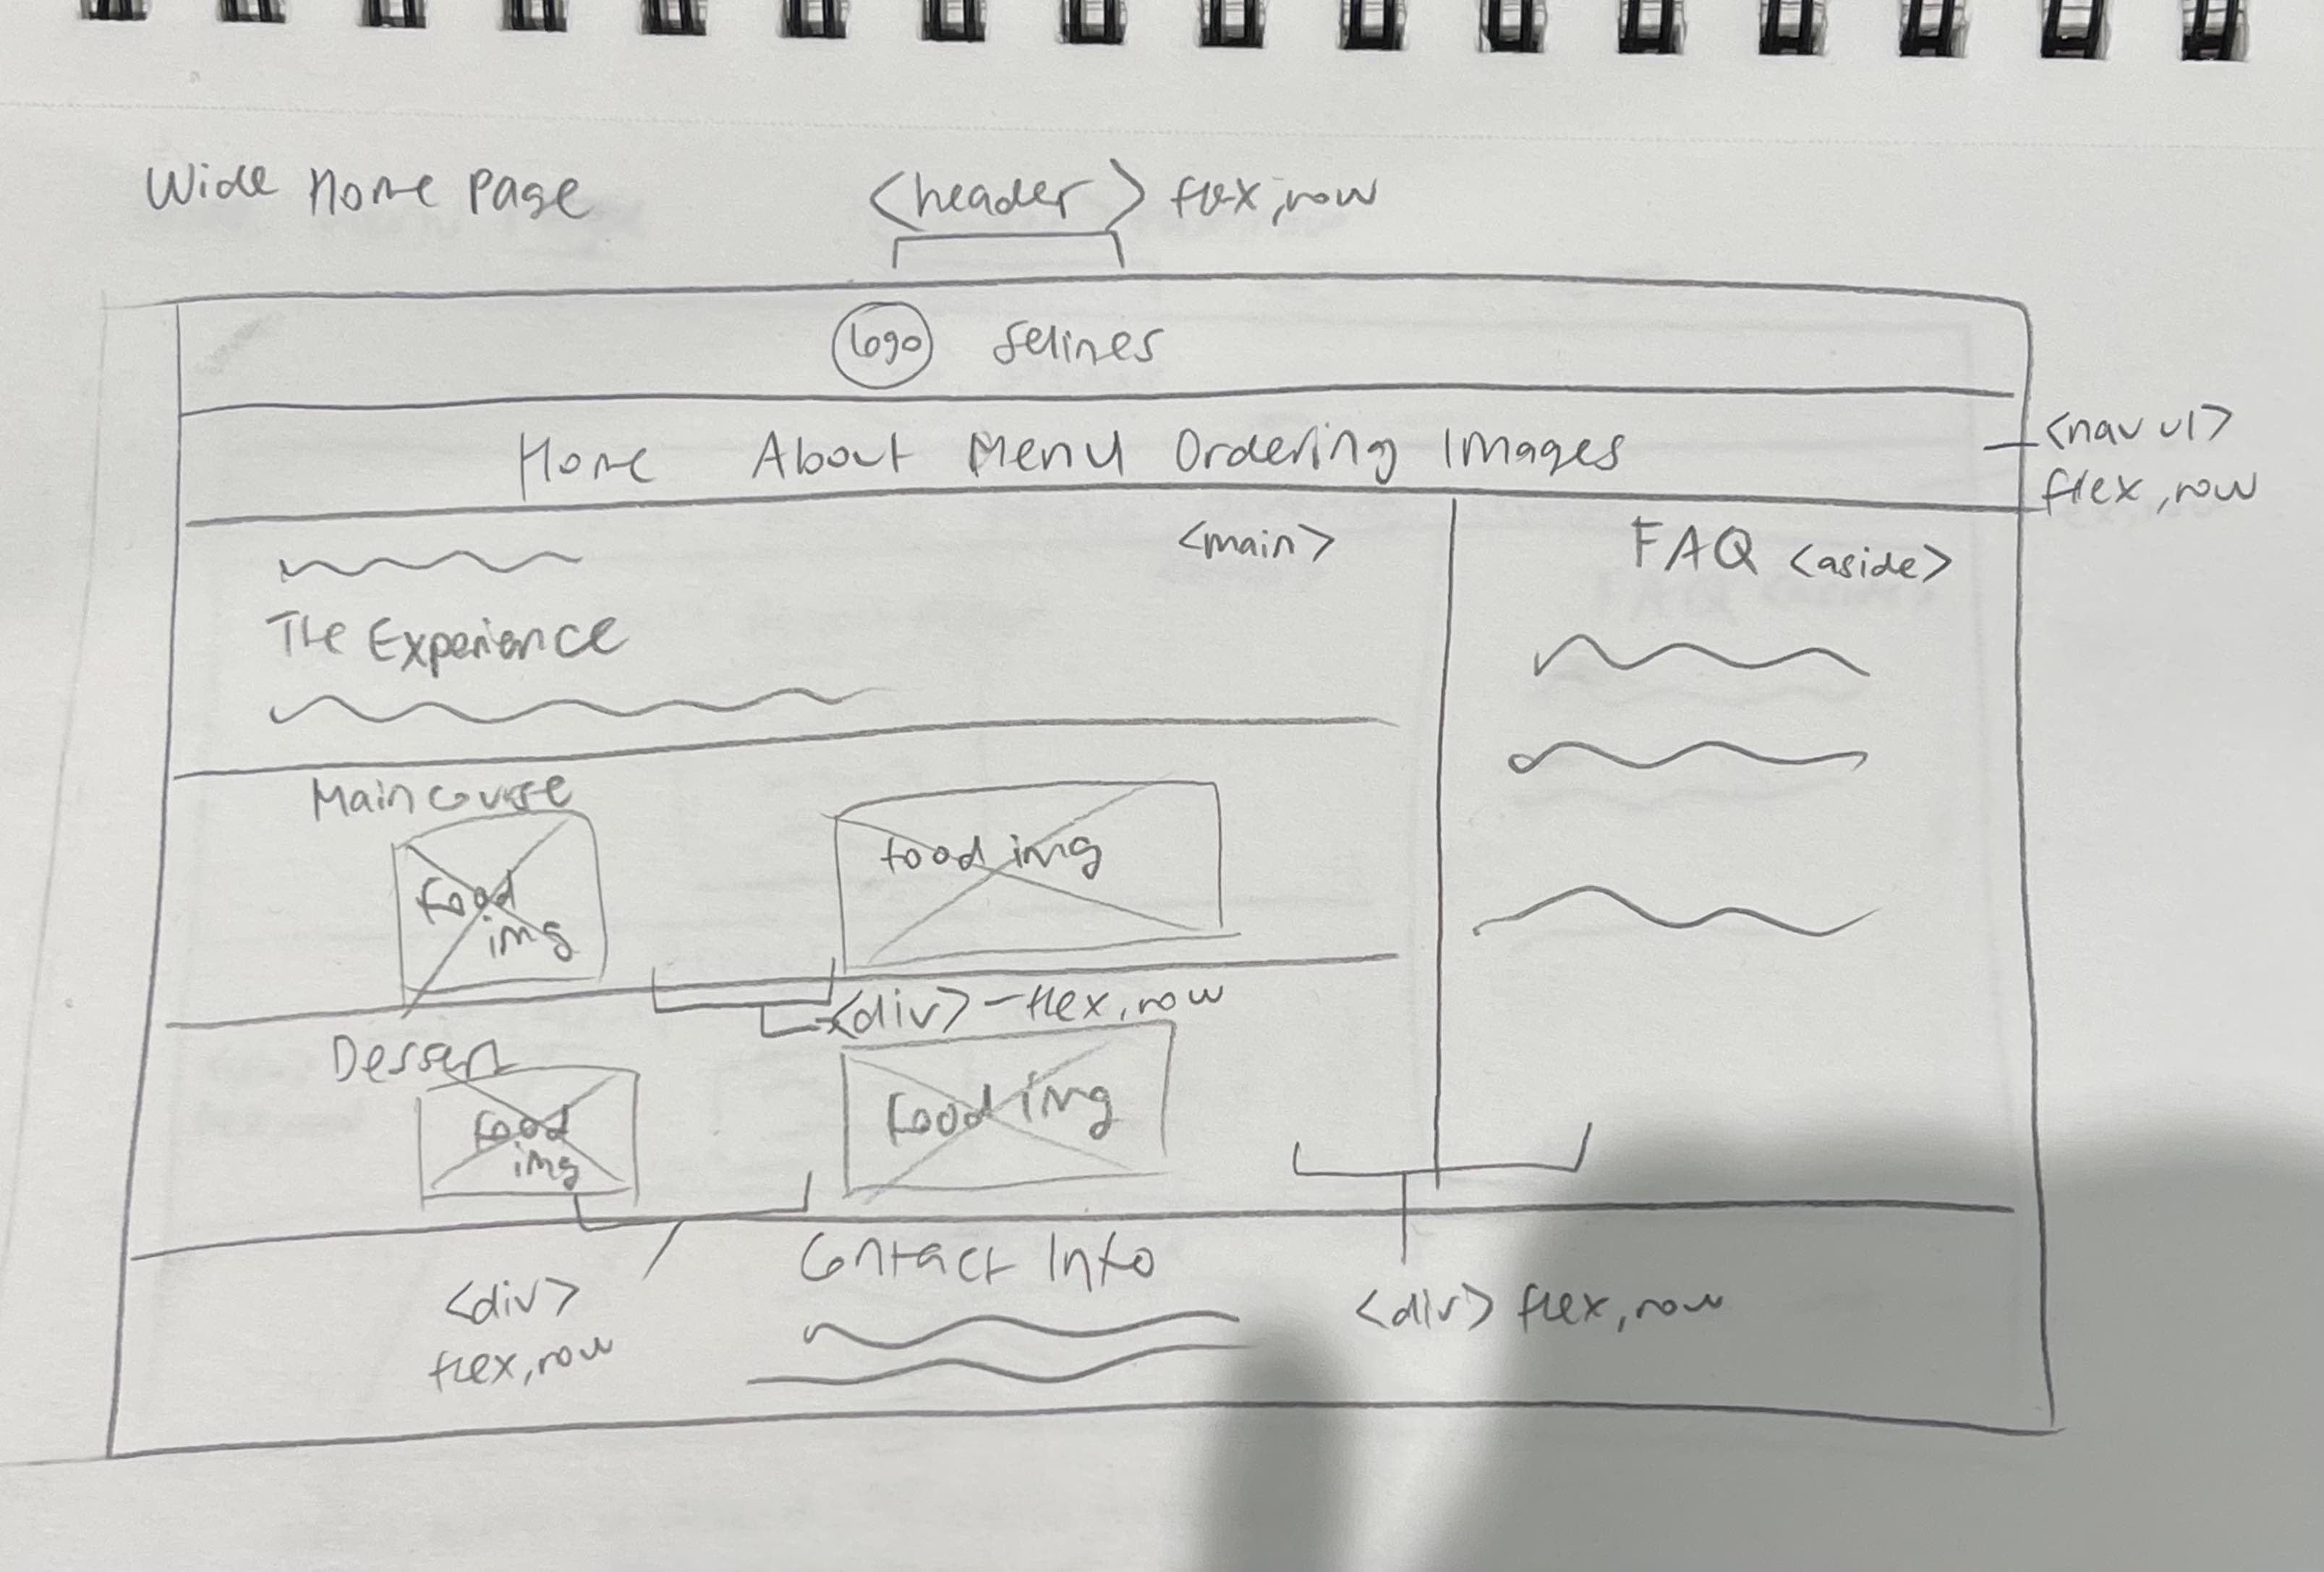 Wide Home Page
<header> flex, row
Logo Selines
Home About Menu Ordering Images
<nav ul>
flex, row
<main>
FAQ <aside>
The Experience
Main course
food
img
food img
<div> - flex, row
Dessert
food
img
food img
Contact Info
<div>
flex, row
<div> flex, row